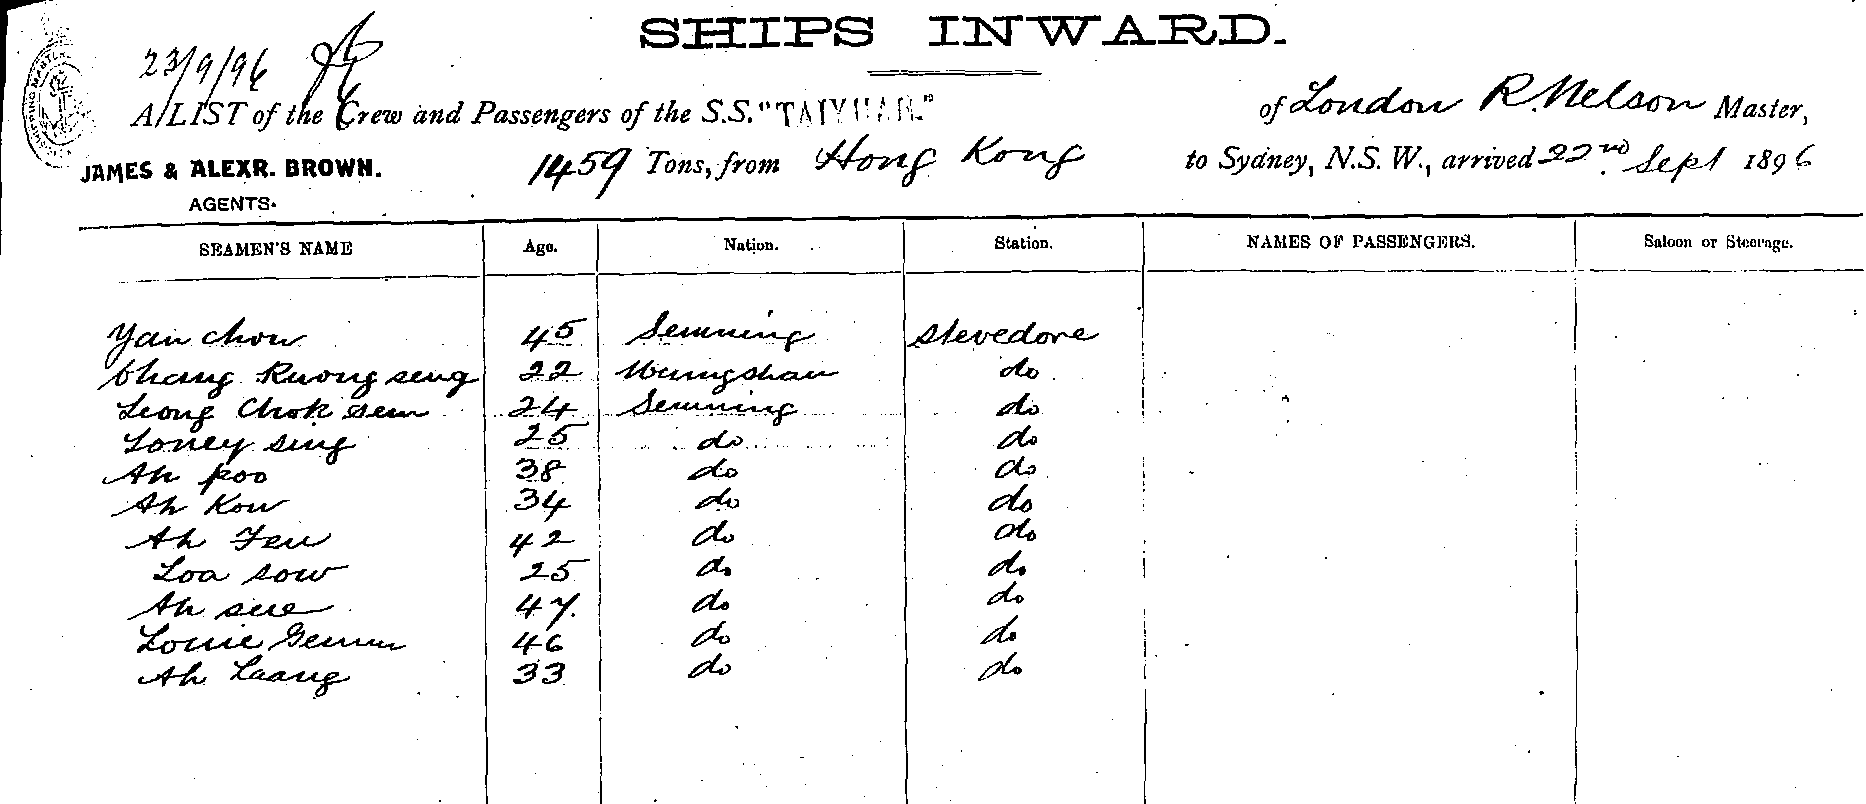 SHIPS INWARD.
23/9/96
A LIST of the Crew and Passengers of the S.S. "TAIYUAN." of London R. Nelson Master,
JAMES & ALEXR. BROWN. 1459 Tons, from Hong Kong to Sydney, N.S.W., arrived 22nd Sept 1896
AGENTS.
SEAMEN'S NAME Age. Nation. Station. NAMES OF PASSENGERS. Saloon or Steerage.
Yan Chow 45 Sunning Stevedore
Chang Kuong seng 22 Heungshan do
Leong Chok sem 24 Sunning do
Loney sing 25 do do
Ah poo 38 do do
Ah Kow 34 do do
Ah Fen 42 do do
Loa sow 25 do do
Ah sue 47 do do
Louie 46 do do
Ah Laang 33 do do